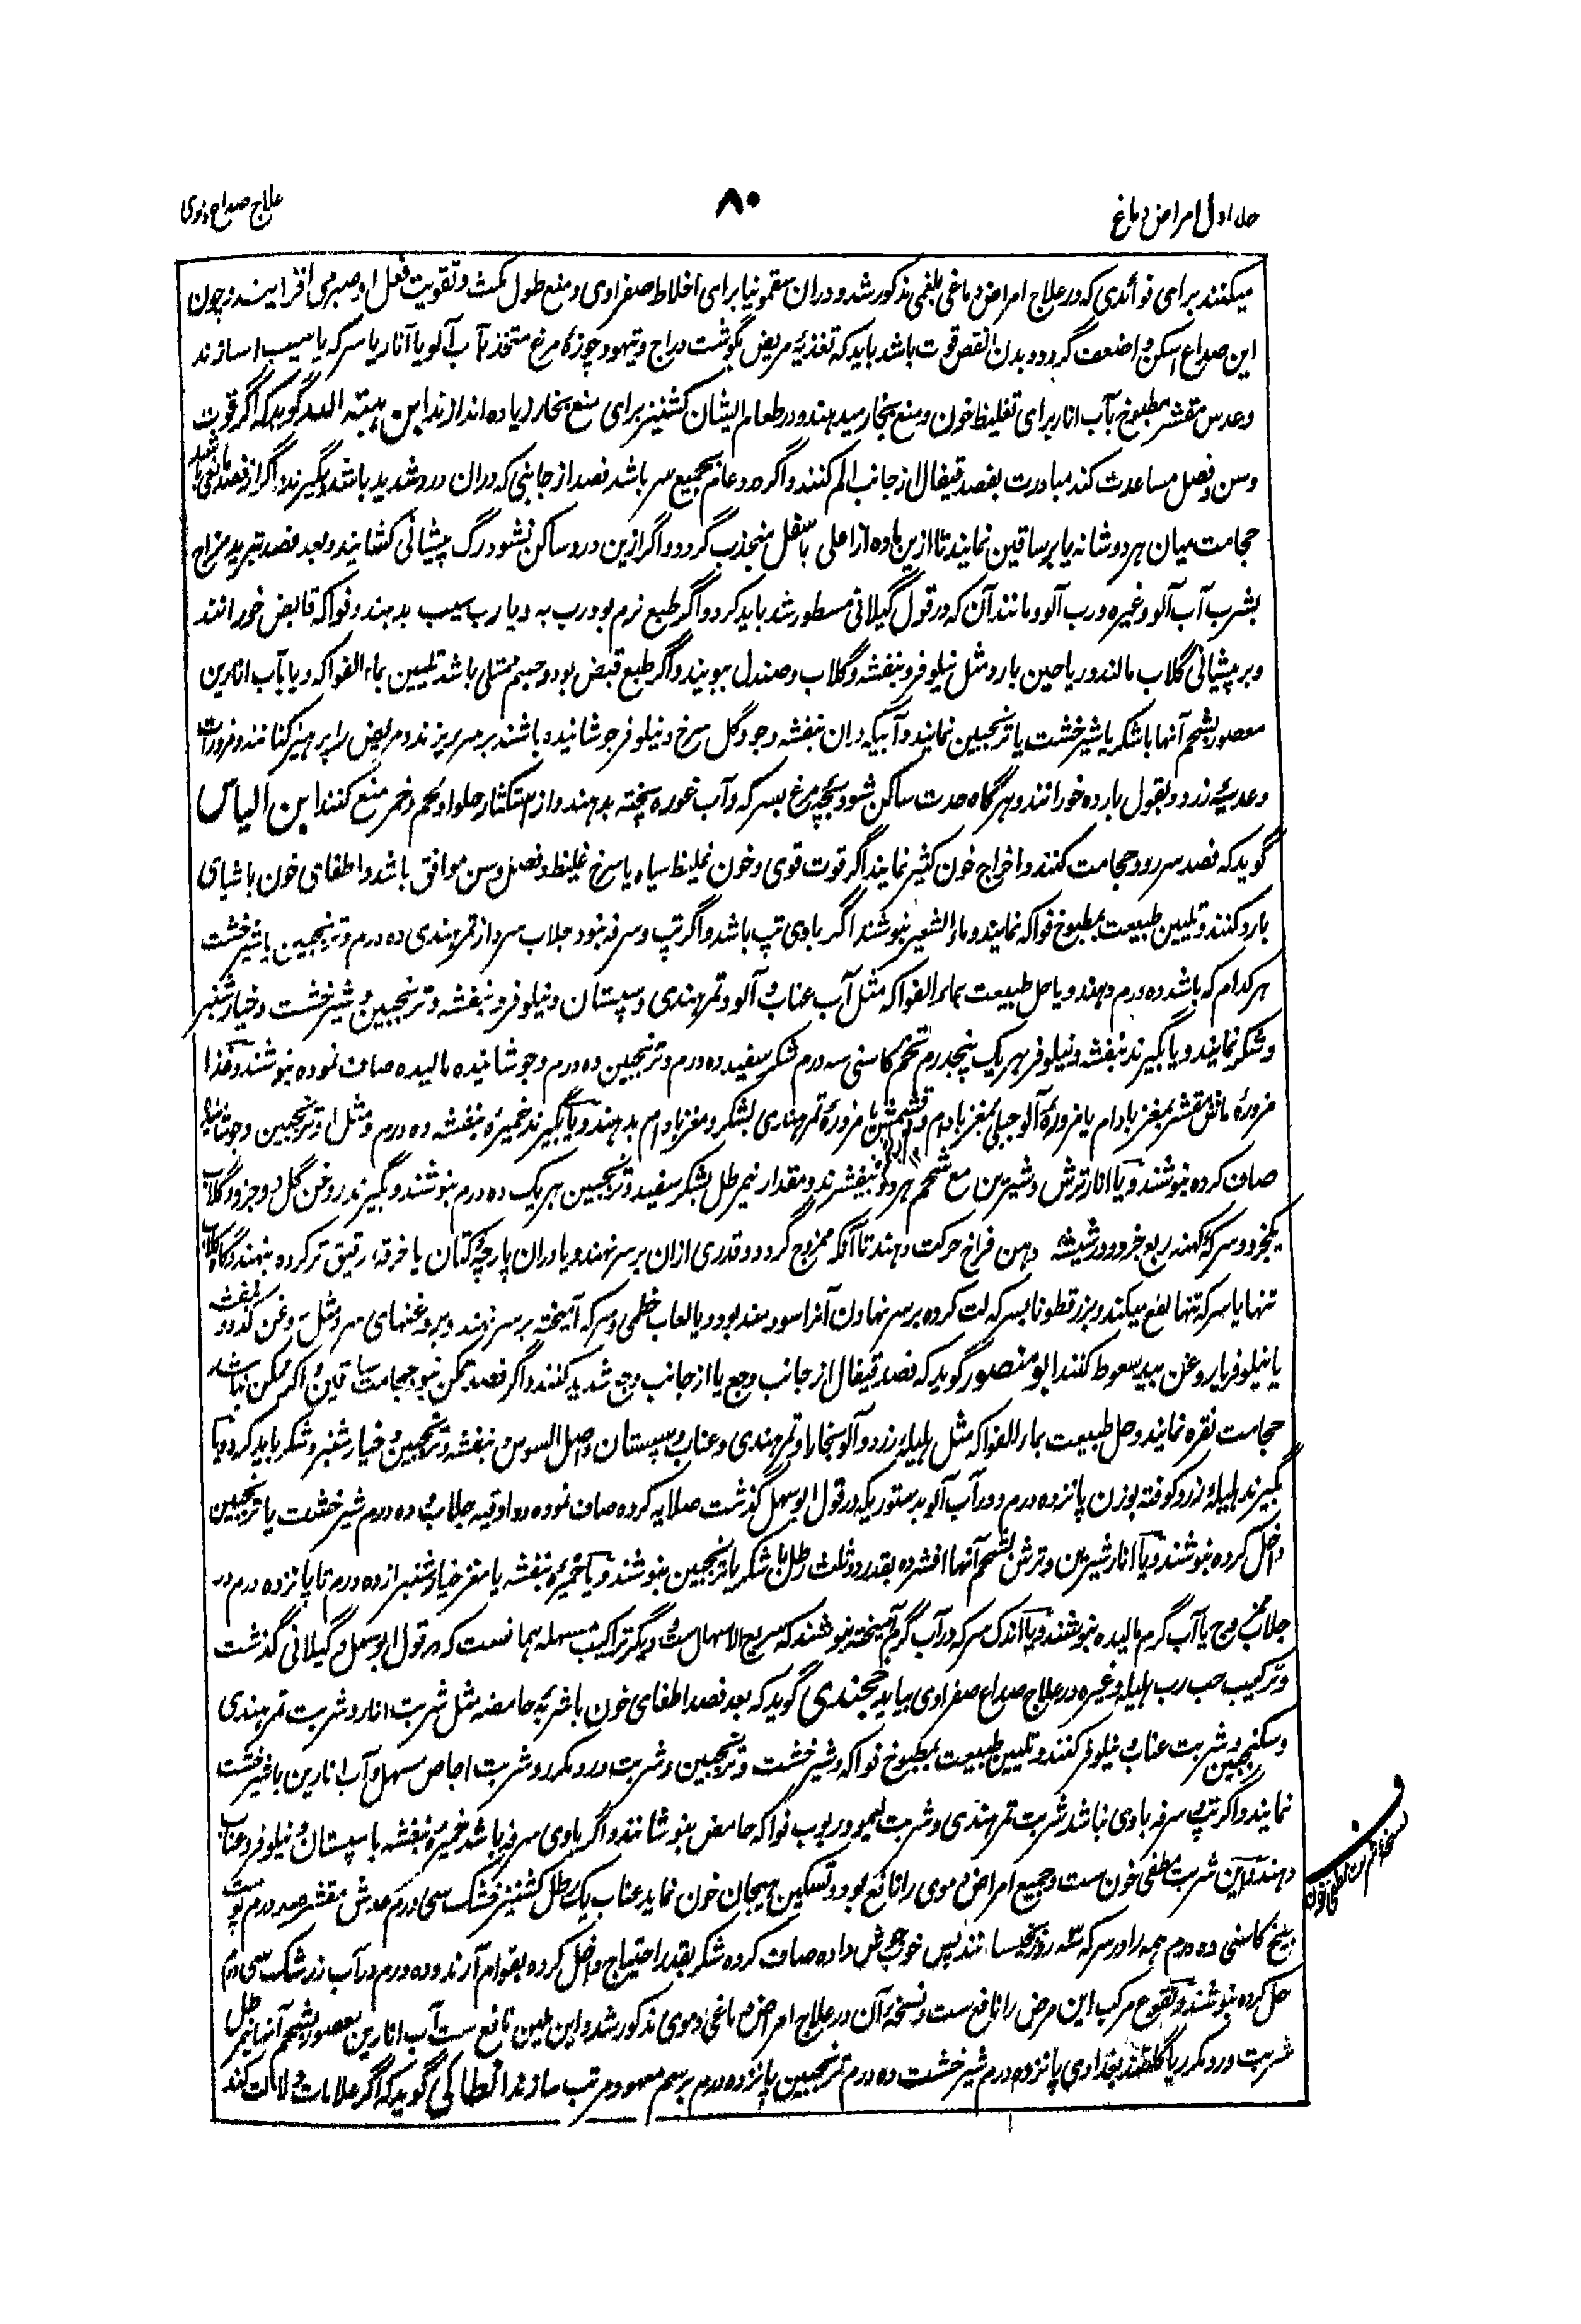 جلد اول امراض دماغ
۸۰
علاج صداع دموی
میکنند برای فوائدی که در علاج امراض دماغی بلغمی مذکور شد و دران سقمونیا برای اخلاط صفراوی و منع طول مکث و تقویت فعل او صبر می افزایند و چون
این صداع اسکن و اضعف گردد و بدن انقص قوت باشد باید که تغذیهٔ مریض بگوشت دراج و تیهو و چوزهٔ مرغ متخذ بآب آلو یا انار یا سرکه یا سیب سازند
وعدس مقشر مطبوخ بآب انار برای تغلیظ خون و منع بخار میدهند و در طعام ایشان کشنیز برای منع بخار زیاده اندازند ابن هبته الله گوید که اگر قوت
وسن و فصل مساعدت کند مبادرت بفصد قیفال از جانب الم کنند و اگر درد عام بجمیع سر باشد فصد از جانبی که دران درد شدید باشد بگیرند و اگر از فصد مانعی باشد
حجامت میان هر دو شانه یا بر ساقین نمایند تا ازین ماده از اعلی باسفل منجذب گردد و اگر ازین درد ساکن نشود رگ پیشانی کشایند و بعد فصد تبرید مزاج
بشرب آب آلو و غیره و رب آلو و مانند آن که در قول گیلانی مسطور شد باید کرد و اگر طبع نرم بود رب به و یا رب سیب بدهند و فواکه قابض خورانند
و بر پیشانی گلاب مالند و ریاحین بارد مثل نیلوفر و بنفشه و گلاب و صندل ببویند و اگر طبع قبض بود و جسم ممتلی باشد تلیین بماء الفواکه و یا بآب انارین
معصور بشحم آنها با شکر یا شیرخشت یا ترنجبین نمایند و آبیکه دران بنفشه و جو و گل سرخ و نیلوفر جوشانیده باشند بر سر ریزند و مریض را پرهیز کنانند و مزورات
وعدسیهٔ زرد و بقول بارده خورانند و هرگاه حدت ساکن شود بچه مرغ بسرکه و آب غوره پخته بدهند و از استکثار حلوا و لحم و خمر منع کنند ابن الیاس
گوید که فصد سررو و حجامت کنند و اخراج خون کثیر نمایند اگر قوت قوی و خون غلیظ سیاه یا سرخ غلیظ و فصل و سن موافق باشد و اطفای خون باشیای
بارد کنند و تلیین طبیعت بمطبوخ فواکه نمایند و ماء الشعیر بنوشند اگر باوی تپ باشد و اگر تپ و سرفه نبود جلاب سرد از تمرهندی ده درم و ترنجبین یا شیرخشت
هرکدام که باشد ده درم دهند و یا حل طبیعت بماء الفواکه مثل آب عناب و آلو و تمرهندی و سپستان و نیلوفر و بنفشه و ترنجبین و شیرخشت و خیارشنبر
و شکر نمایند و یا بگیرند بنفشه و نیلوفر هر یک پنجدرم تخم کاسنی سه درم شکر سفید ده درم و ترنجبین ده درم و جوشانیده مالیده صاف نموده بنوشند و غذا
مزورهٔ ماش مقشر بمغز بادام یا مزورهٔ آلو جبلی بمغز بادام و کشمش یا مزورهٔ تمرهندی بشکر و مغز بادام بدهند و یا بگیرند خمیرهٔ بنفشه ده درم و مثل او ترنجبین و جوشانیده
صاف کرده بنوشند و یا انار ترش و شیرین مع شحم هردو بیفشرند و مقدار نیم رطل بشکر سفید و ترنجبین هر یک ده درم بنوشند و بگیرند روغن گل دو جزو و گلاب
یکجزو و سرکهٔ کهنه ربع جزو و در شیشه دهن فراخ حرکت دهند تا آنکه ممزوج گردد و قدری ازان بر سر نهند و یا دران پارچهٔ کتان یا خرقهٔ رقیق تر کرده بنهند و گاه گلاب
تنها یا سرکه تنها نفع میکند و بزرقطونا بسرکه لت کرده بر سر نهادن آنرا سودمند بود و یا لعاب خطمی و سرکه آمیخته بر سر نهند و بروغنهای سرد مثل روغن کدو و بنفشه
یا نیلوفر یا روغن بید سعوط کنند ابو منصور گوید که فصد قیفال از جانب وجع یا از جانب وجع شدید کنند و اگر فصد ممکن نبود حجامت ساقین و اگر ممکن نباشد
حجامت نقره نمایند و حل طبیعت بماء الفواکه مثل هلیله زرد و آلو بخارا و تمرهندی و عناب و سپستان و اصل السوس و بنفشه و ترنجبین و خیارشنبر و شکر باید کرد و یا
بگیرند هلیلهٔ زرد کوفته بوزن پانزده درم و در آب آلو بدستوریکه در قول ابوسهل گذشت صلایه کرده صاف نموده دو اوقیه جلاب و ده درم شیرخشت یا ترنجبین
داخل کرده بنوشند و یا انار شیرین و ترش بشحم آنها افشرده بقدر دو ثلث رطل با شکر یا ترنجبین بنوشند و یا خمیرهٔ بنفشه یا مغز خیارشنبر از ده درم تا پانزده درم در
جلاب ممزوج یا آب گرم مالیده بنوشند و یا اندک سرکه در آب گرم آمیخته بنوشند که سریع الاسهال ست و دیگر تراکیب مسهله همانست که در قول ابوسهل و گیلانی گذشت
و ترکیب حب رب هلیله و غیره در علاج صداع صفراوی بیاید خجندی گوید که بعد فصد اطفای خون باشربهٔ حامضه مثل شربت انار و شربت تمرهندی
و سکنجبین و شربت عناب و نیلوفر کنند و تلیین طبیعت بمطبوخ فواکه و شیرخشت و ترنجبین و شربت ورد مکرر و شربت اجاص مسهل و آب انارین با شیرخشت
نمایند و اگر تپ و سرفه باوی نباشد شربت تمرهندی و شربت لیمو و ربوب فواکه حامض بنوشانند و اگر باوی سرفه باشد خمیرهٔ بنفشه با سپستان و نیلوفر و عناب
دهند و این شربت مطفی خون ست و جمیع امراض دموی را نافع بود و تسکین هیجان خون نماید عناب یک رطل کشنیز خشک سی درم عدس مقشر صد درم پوست
بیخ کاسنی ده درم همه را در سرکه سه روز بخیسانند پس خوب جوش داده صاف کرده شکر بقدر احتیاج داخل کرده بقوام آرند و ده درم در آب زرشک سی درم
حل کرده بنوشند و نقوع مرکب این مرض را نافع ست و نسخهٔ آن در علاج امراض دماغی دموی مذکور شد و این ملین نافع ست آب انارین معصور بشحم آنها نیم رطل
شربت ورد مکرر یا گلقند بغدادی پانزده درم شیرخشت ده درم ترنجبین پانزده درم برسم معهود مرتب سازند انطاکی گوید که اگر علامات دلالت کند